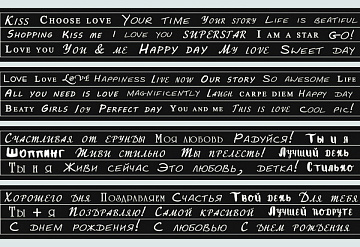 Kiss Choose love Your time Your story Life is beatiful
Shopping Kiss me I love you SUPERSTAR I am a star Go!
Love you You & me Happy day My love Sweet day
Love Love Love Happiness Live now Our story So awesome Life
All you need is love Magnificently Laugh carpe diem Happy
Beaty Girls Joy Perfect day You and me This is love Cool pic!
Счастливая от ерунды Моя любовь Радуйся! Ты и я
Шоппинг Живи стильно Ты прелесть! Лучший день
Ты и я Живи сейчас Это любовь, детка! Стильно
Хорошего дня Поздравляем Счастья Твой день Для тебя
Ты + я Поздравляю! Самой красивой Лучшей подруге
С днем рождения! С любовью С днем рождения